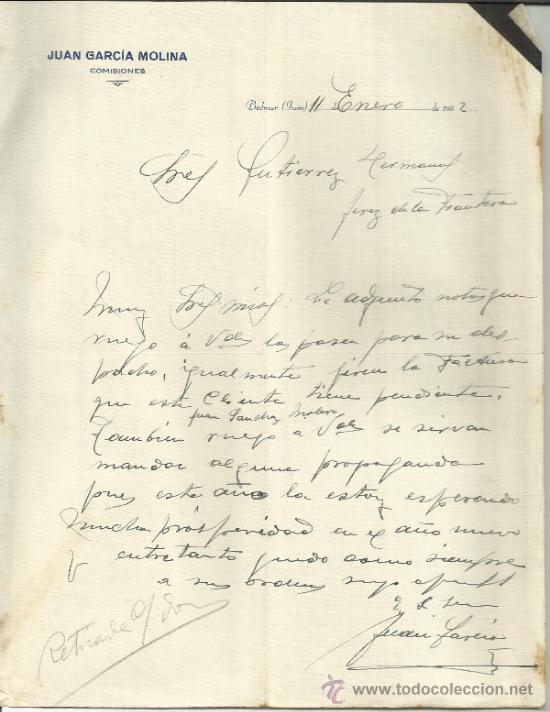 JUAN GARCÍA MOLINA
COMISIONES
Bedmar (Jaén) 11 de Enero de 1932
Sres Gutierrez Hermanos
Jerez de la Frontera
Muy Sres mios: Le adjunto notas que
ruego á Vdes las pasen para su des-
pacho, igualmente giren la Factura
que este Cliente tiene pendiente.
Juan Sanchez Molero
Tambien ruego a Vdes se sirvan
mandar alguna propaganda
pues este año la estoy esperando
Mucha prosperidad en el año nuevo
y entretanto quedo como siempre
a sus ordenes suyo
Juan García
Retirada
todocoleccion
www.todocoleccion.net